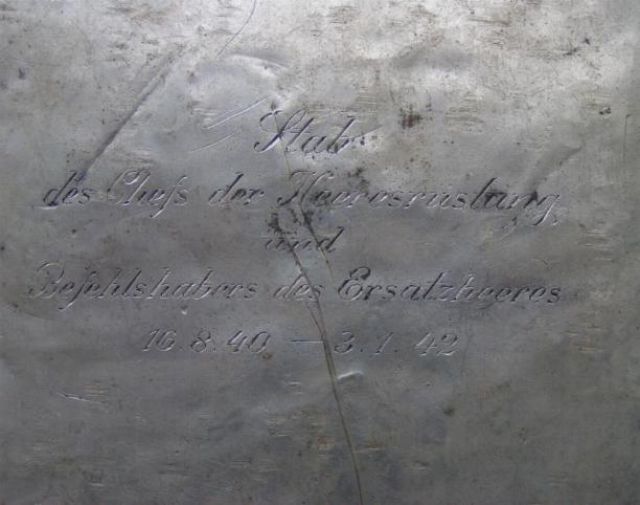 Stab
des Chefs der Heeresrüstung
und
Befehlshabers des Ersatzheeres
16.8.40 — 3.1.42